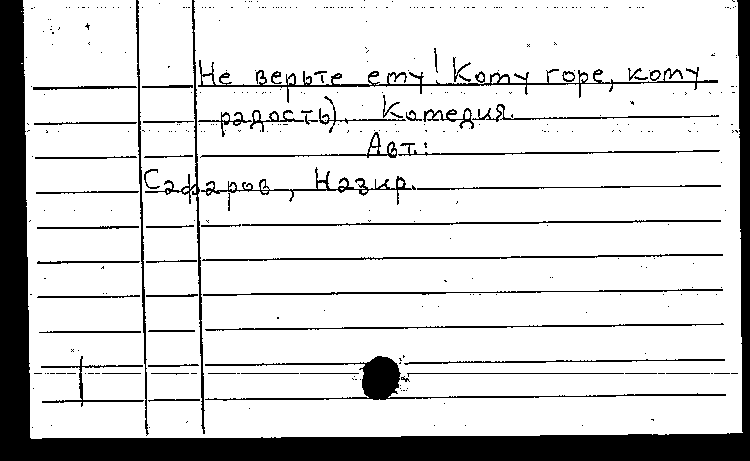 Не верьте ему! Кому горе, кому
радость). Комедия.
Авт.:
Сафаров, Назир.